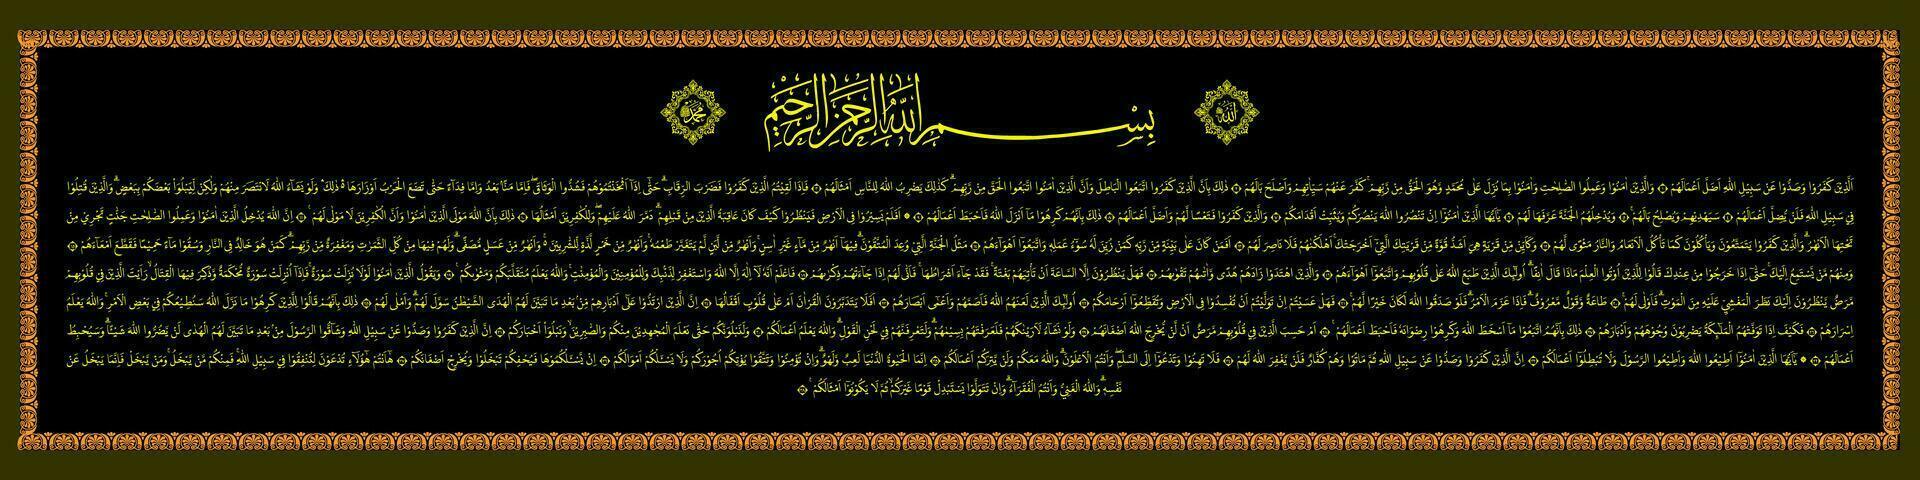 الله
محمد
بِسْمِ اللّٰهِ الرَّحْمٰنِ الرَّحِيْمِ
اَلَّذِيْنَ كَفَرُوْا وَصَدُّوْا عَنْ سَبِيْلِ اللّٰهِ اَضَلَّ اَعْمَالَهُمْ ۝ وَالَّذِيْنَ اٰمَنُوْا وَعَمِلُوا الصّٰلِحٰتِ وَاٰمَنُوْا بِمَا نُزِّلَ عَلٰى مُحَمَّدٍ وَّهُوَ الْحَقُّ مِنْ رَّبِّهِمْ ۙ كَفَّرَ عَنْهُمْ سَيِّاٰتِهِمْ وَاَصْلَحَ بَالَهُمْ ۝ ذٰلِكَ بِاَنَّ الَّذِيْنَ كَفَرُوا اتَّبَعُوا الْبَاطِلَ وَاَنَّ الَّذِيْنَ اٰمَنُوا اتَّبَعُوا الْحَقَّ مِنْ رَّبِّهِمْ ۗ كَذٰلِكَ يَضْرِبُ اللّٰهُ لِلنَّاسِ اَمْثَالَهُمْ ۝ فَاِذَا لَقِيْتُمُ الَّذِيْنَ كَفَرُوْا فَضَرْبَ الرِّقَابِ ۗ حَتّٰٓى اِذَآ اَثْخَنْتُمُوْهُمْ فَشُدُّوا الْوَثَاقَ ۖ فَاِمَّا مَنًّاۢ بَعْدُ وَاِمَّا فِدَاۤءً حَتّٰى تَضَعَ الْحَرْبُ اَوْزَارَهَا ەۛ ذٰلِكَ ۛ وَلَوْ يَشَاۤءُ اللّٰهُ لَانْتَصَرَ مِنْهُمْ وَلٰكِنْ لِّيَبْلُوَا۟ بَعْضَكُمْ بِبَعْضٍ ۗ وَالَّذِيْنَ قُتِلُوْا
فِيْ سَبِيْلِ اللّٰهِ فَلَنْ يُّضِلَّ اَعْمَالَهُمْ ۝ سَيَهْدِيْهِمْ وَيُصْلِحُ بَالَهُمْ ۚ ۝ وَيُدْخِلُهُمُ الْجَنَّةَ عَرَّفَهَا لَهُمْ ۝ يٰٓاَيُّهَا الَّذِيْنَ اٰمَنُوْٓا اِنْ تَنْصُرُوا اللّٰهَ يَنْصُرْكُمْ وَيُثَبِّتْ اَقْدَامَكُمْ ۝ وَالَّذِيْنَ كَفَرُوْا فَتَعْسًا لَّهُمْ وَاَضَلَّ اَعْمَالَهُمْ ۝ ذٰلِكَ بِاَنَّهُمْ كَرِهُوْا مَآ اَنْزَلَ اللّٰهُ فَاَحْبَطَ اَعْمَالَهُمْ ۝ ۞ اَفَلَمْ يَسِيْرُوْا فِى الْاَرْضِ فَيَنْظُرُوْا كَيْفَ كَانَ عَاقِبَةُ الَّذِيْنَ مِنْ قَبْلِهِمْ ۗ دَمَّرَ اللّٰهُ عَلَيْهِمْ ۖ وَلِلْكٰفِرِيْنَ اَمْثَالُهَا ۝ ذٰلِكَ بِاَنَّ اللّٰهَ مَوْلَى الَّذِيْنَ اٰمَنُوْا وَاَنَّ الْكٰفِرِيْنَ لَا مَوْلٰى لَهُمْ ۚ ۝ اِنَّ اللّٰهَ يُدْخِلُ الَّذِيْنَ اٰمَنُوْا وَعَمِلُوا الصّٰلِحٰتِ جَنّٰتٍ تَجْرِيْ مِنْ
تَحْتِهَا الْاَنْهٰرُ ۗ وَالَّذِيْنَ كَفَرُوْا يَتَمَتَّعُوْنَ وَيَأْكُلُوْنَ كَمَا تَأْكُلُ الْاَنْعَامُ وَالنَّارُ مَثْوًى لَّهُمْ ۝ وَكَاَيِّنْ مِّنْ قَرْيَةٍ هِيَ اَشَدُّ قُوَّةً مِّنْ قَرْيَتِكَ الَّتِيْٓ اَخْرَجَتْكَ ۚ اَهْلَكْنٰهُمْ فَلَا نَاصِرَ لَهُمْ ۝ اَفَمَنْ كَانَ عَلٰى بَيِّنَةٍ مِّنْ رَّبِّهٖ كَمَنْ زُيِّنَ لَهٗ سُوْۤءُ عَمَلِهٖ وَاتَّبَعُوْٓا اَهْوَاۤءَهُمْ ۝ مَثَلُ الْجَنَّةِ الَّتِيْ وُعِدَ الْمُتَّقُوْنَ ۗ فِيْهَآ اَنْهٰرٌ مِّنْ مَّاۤءٍ غَيْرِ اٰسِنٍ ۚ وَاَنْهٰرٌ مِّنْ لَّبَنٍ لَّمْ يَتَغَيَّرْ طَعْمُهٗ ۚ وَاَنْهٰرٌ مِّنْ خَمْرٍ لَّذَّةٍ لِّلشّٰرِبِيْنَ ەۚ وَاَنْهٰرٌ مِّنْ عَسَلٍ مُّصَفًّى ۗ وَلَهُمْ فِيْهَا مِنْ كُلِّ الثَّمَرٰتِ وَمَغْفِرَةٌ مِّنْ رَّبِّهِمْ ۗ كَمَنْ هُوَ خَالِدٌ فِى النَّارِ وَسُقُوْا مَاۤءً حَمِيْمًا فَقَطَّعَ اَمْعَاۤءَهُمْ ۝
وَمِنْهُمْ مَّنْ يَّسْتَمِعُ اِلَيْكَ ۚ حَتّٰٓى اِذَا خَرَجُوْا مِنْ عِنْدِكَ قَالُوْا لِلَّذِيْنَ اُوْتُوا الْعِلْمَ مَاذَا قَالَ اٰنِفًا ۗ اُولٰۤىِٕكَ الَّذِيْنَ طَبَعَ اللّٰهُ عَلٰى قُلُوْبِهِمْ وَاتَّبَعُوْٓا اَهْوَاۤءَهُمْ ۝ وَالَّذِيْنَ اهْتَدَوْا زَادَهُمْ هُدًى وَّاٰتٰىهُمْ تَقْوٰىهُمْ ۝ فَهَلْ يَنْظُرُوْنَ اِلَّا السَّاعَةَ اَنْ تَأْتِيَهُمْ بَغْتَةً ۚ فَقَدْ جَاۤءَ اَشْرَاطُهَا ۚ فَاَنّٰى لَهُمْ اِذَا جَاۤءَتْهُمْ ذِكْرٰىهُمْ ۝ فَاعْلَمْ اَنَّهٗ لَآ اِلٰهَ اِلَّا اللّٰهُ وَاسْتَغْفِرْ لِذَنْۢبِكَ وَلِلْمُؤْمِنِيْنَ وَالْمُؤْمِنٰتِ ۚ وَاللّٰهُ يَعْلَمُ مُتَقَلَّبَكُمْ وَمَثْوٰىكُمْ ۚ ۝ وَيَقُوْلُ الَّذِيْنَ اٰمَنُوْا لَوْلَا نُزِّلَتْ سُوْرَةٌ ۚ فَاِذَآ اُنْزِلَتْ سُوْرَةٌ مُّحْكَمَةٌ وَّذُكِرَ فِيْهَا الْقِتَالُ ۙ رَاَيْتَ الَّذِيْنَ فِيْ قُلُوْبِهِمْ
مَّرَضٌ يَّنْظُرُوْنَ اِلَيْكَ نَظَرَ الْمَغْشِيِّ عَلَيْهِ مِنَ الْمَوْتِ ۗ فَاَوْلٰى لَهُمْ ۚ ۝ طَاعَةٌ وَّقَوْلٌ مَّعْرُوْفٌ ۗ فَاِذَا عَزَمَ الْاَمْرُ ۗ فَلَوْ صَدَقُوا اللّٰهَ لَكَانَ خَيْرًا لَّهُمْ ۚ ۝ فَهَلْ عَسَيْتُمْ اِنْ تَوَلَّيْتُمْ اَنْ تُفْسِدُوْا فِى الْاَرْضِ وَتُقَطِّعُوْٓا اَرْحَامَكُمْ ۝ اُولٰۤىِٕكَ الَّذِيْنَ لَعَنَهُمُ اللّٰهُ فَاَصَمَّهُمْ وَاَعْمٰٓى اَبْصَارَهُمْ ۝ اَفَلَا يَتَدَبَّرُوْنَ الْقُرْاٰنَ اَمْ عَلٰى قُلُوْبٍ اَقْفَالُهَا ۝ اِنَّ الَّذِيْنَ ارْتَدُّوْا عَلٰٓى اَدْبَارِهِمْ مِّنْۢ بَعْدِ مَا تَبَيَّنَ لَهُمُ الْهُدَى الشَّيْطٰنُ سَوَّلَ لَهُمْ ۗ وَاَمْلٰى لَهُمْ ۝ ذٰلِكَ بِاَنَّهُمْ قَالُوْا لِلَّذِيْنَ كَرِهُوْا مَا نَزَّلَ اللّٰهُ سَنُطِيْعُكُمْ فِيْ بَعْضِ الْاَمْرِ ۚ وَاللّٰهُ يَعْلَمُ
اِسْرَارَهُمْ ۝ فَكَيْفَ اِذَا تَوَفَّتْهُمُ الْمَلٰۤىِٕكَةُ يَضْرِبُوْنَ وُجُوْهَهُمْ وَاَدْبَارَهُمْ ۝ ذٰلِكَ بِاَنَّهُمُ اتَّبَعُوْا مَآ اَسْخَطَ اللّٰهَ وَكَرِهُوْا رِضْوَانَهٗ فَاَحْبَطَ اَعْمَالَهُمْ ۚ ۝ اَمْ حَسِبَ الَّذِيْنَ فِيْ قُلُوْبِهِمْ مَّرَضٌ اَنْ لَّنْ يُّخْرِجَ اللّٰهُ اَضْغَانَهُمْ ۝ وَلَوْ نَشَاۤءُ لَاَرَيْنٰكَهُمْ فَلَعَرَفْتَهُمْ بِسِيْمٰىهُمْ ۗ وَلَتَعْرِفَنَّهُمْ فِيْ لَحْنِ الْقَوْلِ ۗ وَاللّٰهُ يَعْلَمُ اَعْمَالَكُمْ ۝ وَلَنَبْلُوَنَّكُمْ حَتّٰى نَعْلَمَ الْمُجٰهِدِيْنَ مِنْكُمْ وَالصّٰبِرِيْنَ ۙ وَنَبْلُوَا۟ اَخْبَارَكُمْ ۝ اِنَّ الَّذِيْنَ كَفَرُوْا وَصَدُّوْا عَنْ سَبِيْلِ اللّٰهِ وَشَاۤقُّوا الرَّسُوْلَ مِنْۢ بَعْدِ مَا تَبَيَّنَ لَهُمُ الْهُدٰى لَنْ يَّضُرُّوا اللّٰهَ شَيْـًٔا ۗ وَسَيُحْبِطُ
اَعْمَالَهُمْ ۝ ۞ يٰٓاَيُّهَا الَّذِيْنَ اٰمَنُوْٓا اَطِيْعُوا اللّٰهَ وَاَطِيْعُوا الرَّسُوْلَ وَلَا تُبْطِلُوْٓا اَعْمَالَكُمْ ۝ اِنَّ الَّذِيْنَ كَفَرُوْا وَصَدُّوْا عَنْ سَبِيْلِ اللّٰهِ ثُمَّ مَاتُوْا وَهُمْ كُفَّارٌ فَلَنْ يَّغْفِرَ اللّٰهُ لَهُمْ ۝ فَلَا تَهِنُوْا وَتَدْعُوْٓا اِلَى السَّلْمِ ۖ وَاَنْتُمُ الْاَعْلَوْنَ ۗ وَاللّٰهُ مَعَكُمْ وَلَنْ يَّتِرَكُمْ اَعْمَالَكُمْ ۝ اِنَّمَا الْحَيٰوةُ الدُّنْيَا لَعِبٌ وَّلَهْوٌ ۗ وَاِنْ تُؤْمِنُوْا وَتَتَّقُوْا يُؤْتِكُمْ اُجُوْرَكُمْ وَلَا يَسْـَٔلْكُمْ اَمْوَالَكُمْ ۝ اِنْ يَّسْـَٔلْكُمُوْهَا فَيُحْفِكُمْ تَبْخَلُوْا وَيُخْرِجْ اَضْغَانَكُمْ ۝ هٰٓاَنْتُمْ هٰٓؤُلَاۤءِ تُدْعَوْنَ لِتُنْفِقُوْا فِيْ سَبِيْلِ اللّٰهِ ۚ فَمِنْكُمْ مَّنْ يَّبْخَلُ ۚ وَمَنْ يَّبْخَلْ فَاِنَّمَا يَبْخَلُ عَنْ
نَّفْسِهٖ ۗ وَاللّٰهُ الْغَنِيُّ وَاَنْتُمُ الْفُقَرَاۤءُ ۗ وَاِنْ تَتَوَلَّوْا يَسْتَبْدِلْ قَوْمًا غَيْرَكُمْ ۙ ثُمَّ لَا يَكُوْنُوْٓا اَمْثَالَكُمْ ۚ ۝